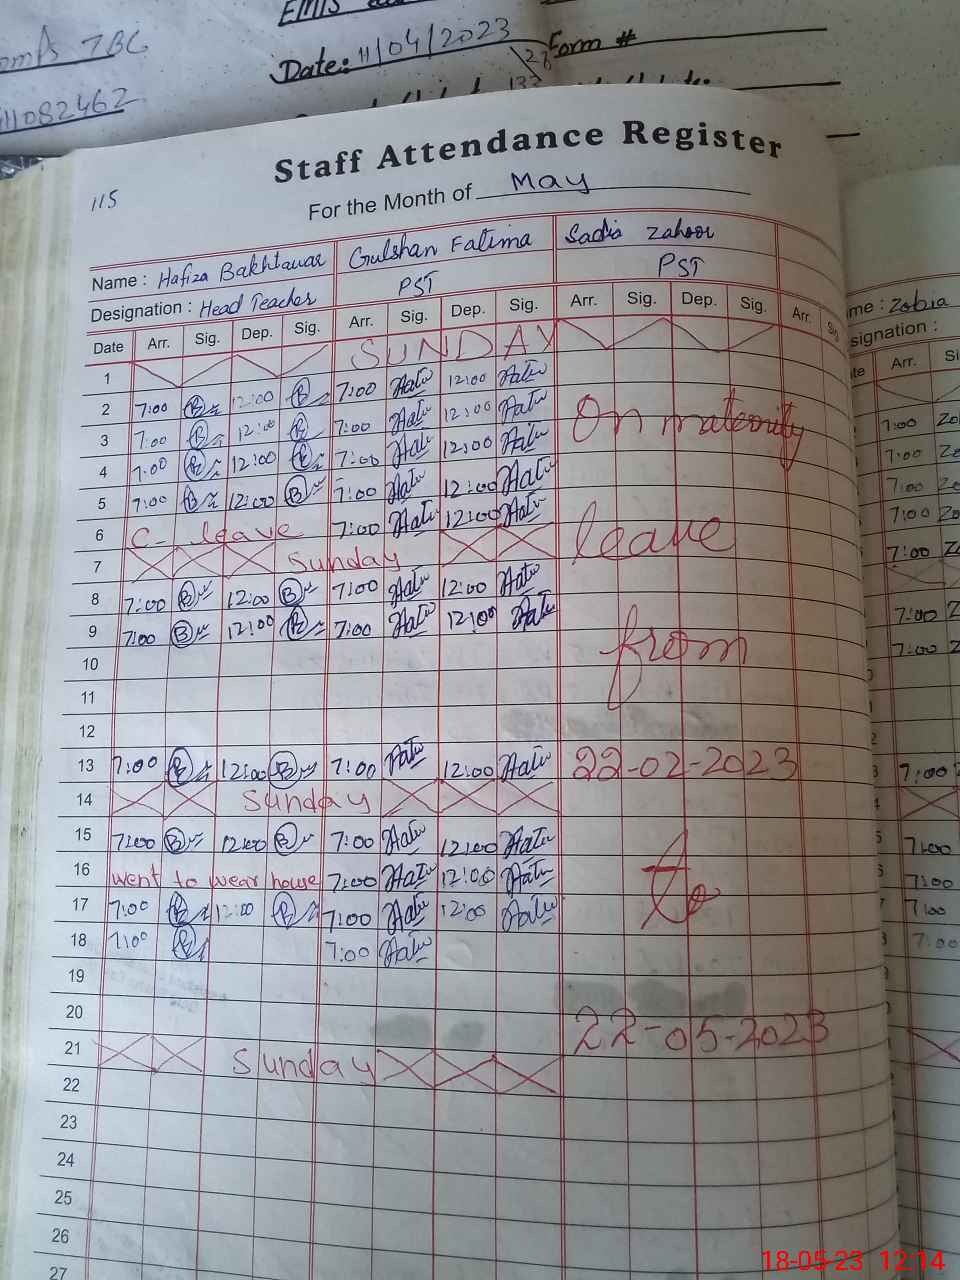 TBC
11082462
EMIS
Date: 11/04/2023
Form #
28
133
115
Staff Attendance Register
For the Month of May
Name : Hafiza Bakhtawar Gulshan Fatima Sadia Zahoor
Designation : Head Teacher PST PST
Date Arr. Sig. Dep. Sig. Arr. Sig. Dep. Sig. Arr. Sig. Dep. Sig. Arr. Sig
1 SUNDAY
2 7:00 12:00 7:00 12:00
3 7:00 12:00 7:00 12:00
4 7:00 12:00 7:00 12:00
5 7:00 12:00 7:00 12:00
6 C- leave 7:00 12:00
7 Sunday
8 7:00 12:00 7:00 12:00
9 7:00 12:00 7:00 12:00
10
11
12
13 7:00 12:00 7:00 12:00
14 Sunday
15 7:00 12:00 7:00 12:00
16 went to wear house 7:00 12:00
17 7:00 12:00 7:00 12:00
18 7:00 7:00
19
20
21 Sunday
22
23
24
25
26
27
On maternity
leave
from
22-02-2023
To
22-05-2023
me : Zobia
signation :
te Arr. Si
7:00 Zo
7:00 Ze
7:00 Zo
7:00 Zo
7:00 Z
7:00 Z
7:00 Z
7:00
7:00
7:00
7:00
7:00
18-05-23 12:14